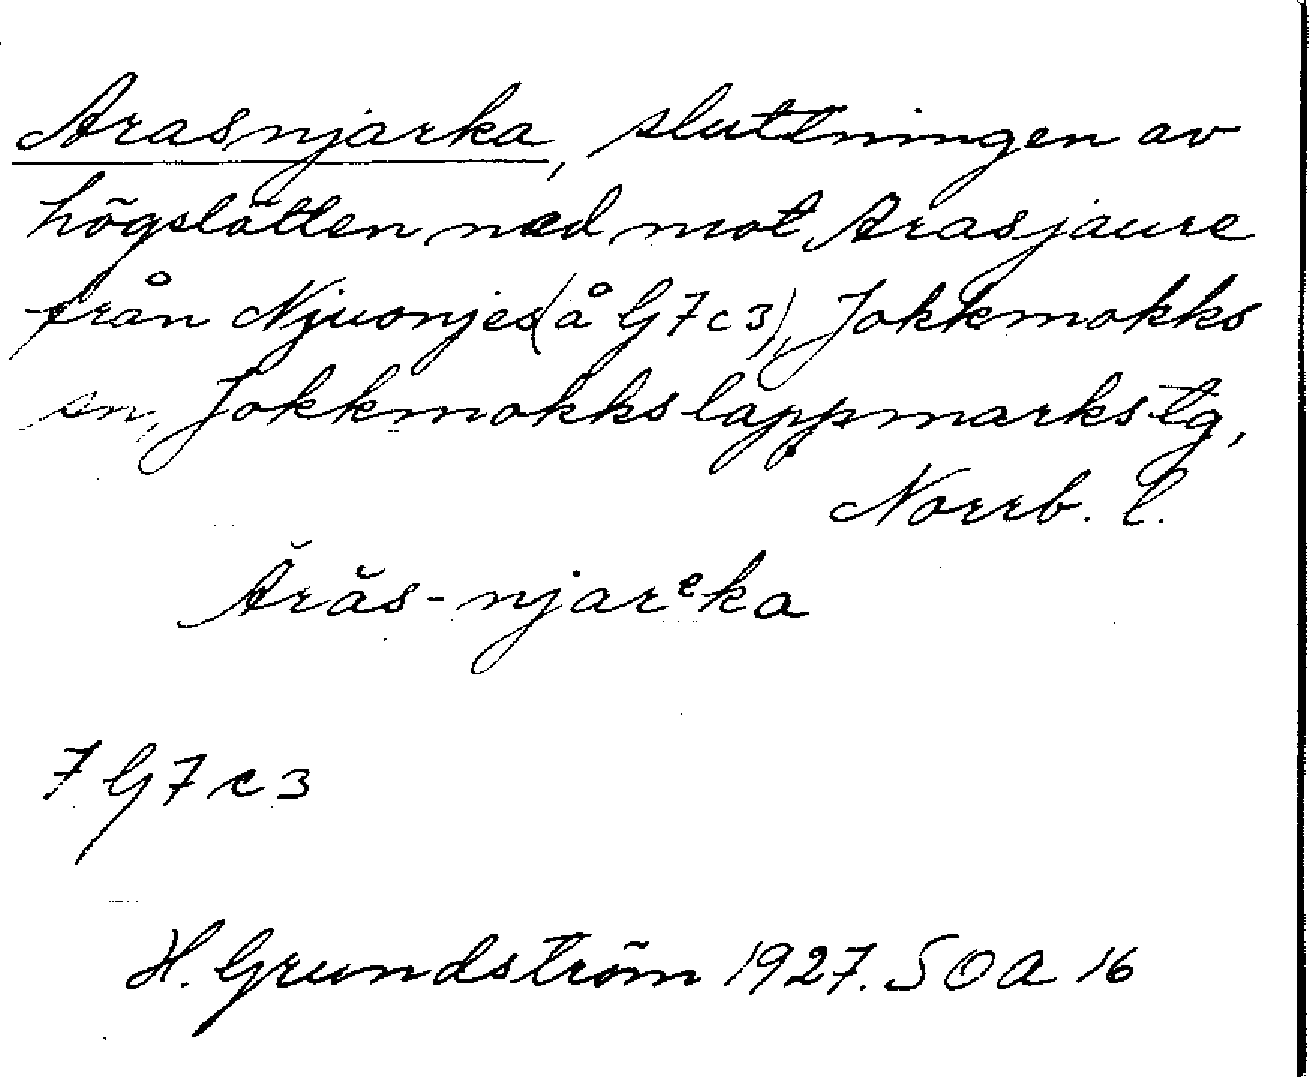 Arasnjarka, sluttningen av
högslätten ned mot Arasjaure
från Njuonjes (å G7c3), Jokkmokks
sn, Jokkmokks lappmarks tg,
Norrb. l.
Ărăs-njarᵉka
7 G7c3
H. Grundström 1927. SOA 16